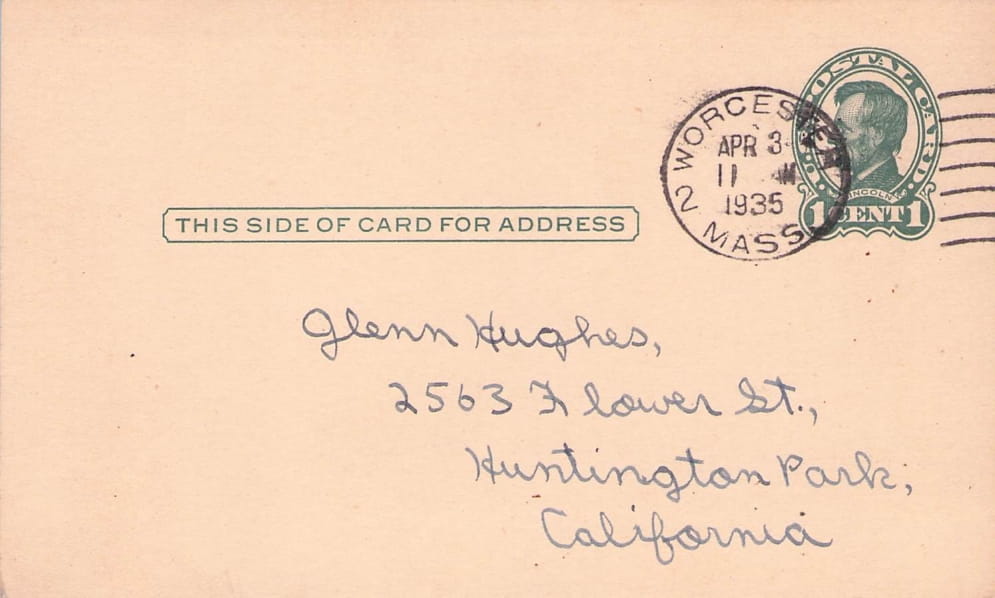 U.S. POSTAL CARD
LINCOLN
1 CENT 1
WORCESTER
APR 3
11 AM
1935
2 MASS.
THIS SIDE OF CARD FOR ADDRESS
Glenn Hughes,
2563 Flower St.,
Huntington Park,
California